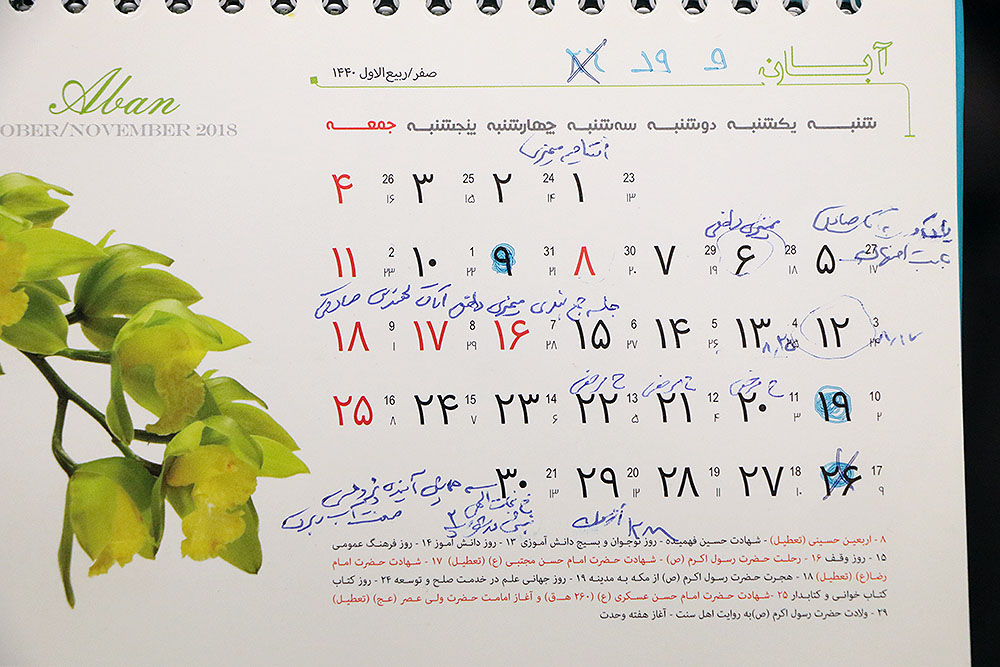 آبان
۹ ۱۹ ۲۶
صفر/ربیع‌الاول ۱۴۴۰
Aban
OBER/NOVEMBER 2018
شنبه یکشنبه دوشنبه سه‌شنبه چهارشنبه پنجشنبه جمعه
افتتاحیه ممیزی
۱ 23 ۱۳ ۲ 24 ۱۴ ۳ 25 ۱۵ ۴ 26 ۱۶
ممیزی داخلی
۵ 27 ۱۷ ۶ 28 ۱۸ ۷ 29 ۱۹ ۸ 30 ۲۰ ۹ 31 ۲۱ ۱۰ 1 ۲۲ ۱۱ 2 ۲۳
جلسه جمع بندی ممیزی داخلی آقای
۱۲ 3 ۲۴ ۱۳ 4 ۲۵ ۱۴ 5 ۲۶ ۱۵ 6 ۲۷ ۱۶ 7 ۲۸ ۱۷ 8 ۲۹ ۱۸ 9 ۱
۱۹ 10 ۲ ۲۰ 11 ۳ ۲۱ 12 ۴ ۲۲ 13 ۵ ۲۳ 14 ۶ ۲۴ 15 ۷ ۲۵ 16 ۸
۲۶ 17 ۹ ۲۷ 18 ۱۰ ۲۸ 19 ۱۱ ۲۹ 20 ۱۲ ۳۰ 21 ۱۳
همایش آینده
صنعت آب
۸ - اربعین حسینی (تعطیل) - شهادت حسین فهمیده - روز نوجوان و بسیج دانش آموزی ۱۳ - روز دانش آموز ۱۴ - روز فرهنگ عمومی
۱۵ - روز وقف ۱۶ - رحلت حضرت رسول اکرم (ص) - شهادت حضرت امام حسن مجتبی (ع) (تعطیل) ۱۷ - شهادت حضرت امام
رضا(ع) (تعطیل) ۱۸ - هجرت حضرت رسول اکرم (ص) از مکه به مدینه ۱۹ - روز جهانی علم در خدمت صلح و توسعه ۲۴ - روز کتاب
کتاب خوانی و کتابدار ۲۵ -شهادت حضرت امام حسن عسکری (ع) (۲۶۰ هـ.ق) و آغاز امامت حضرت ولی عصر (عج) (تعطیل)
۲۹ - ولادت حضرت رسول اکرم (ص)به روایت اهل سنت - آغاز هفته وحدت